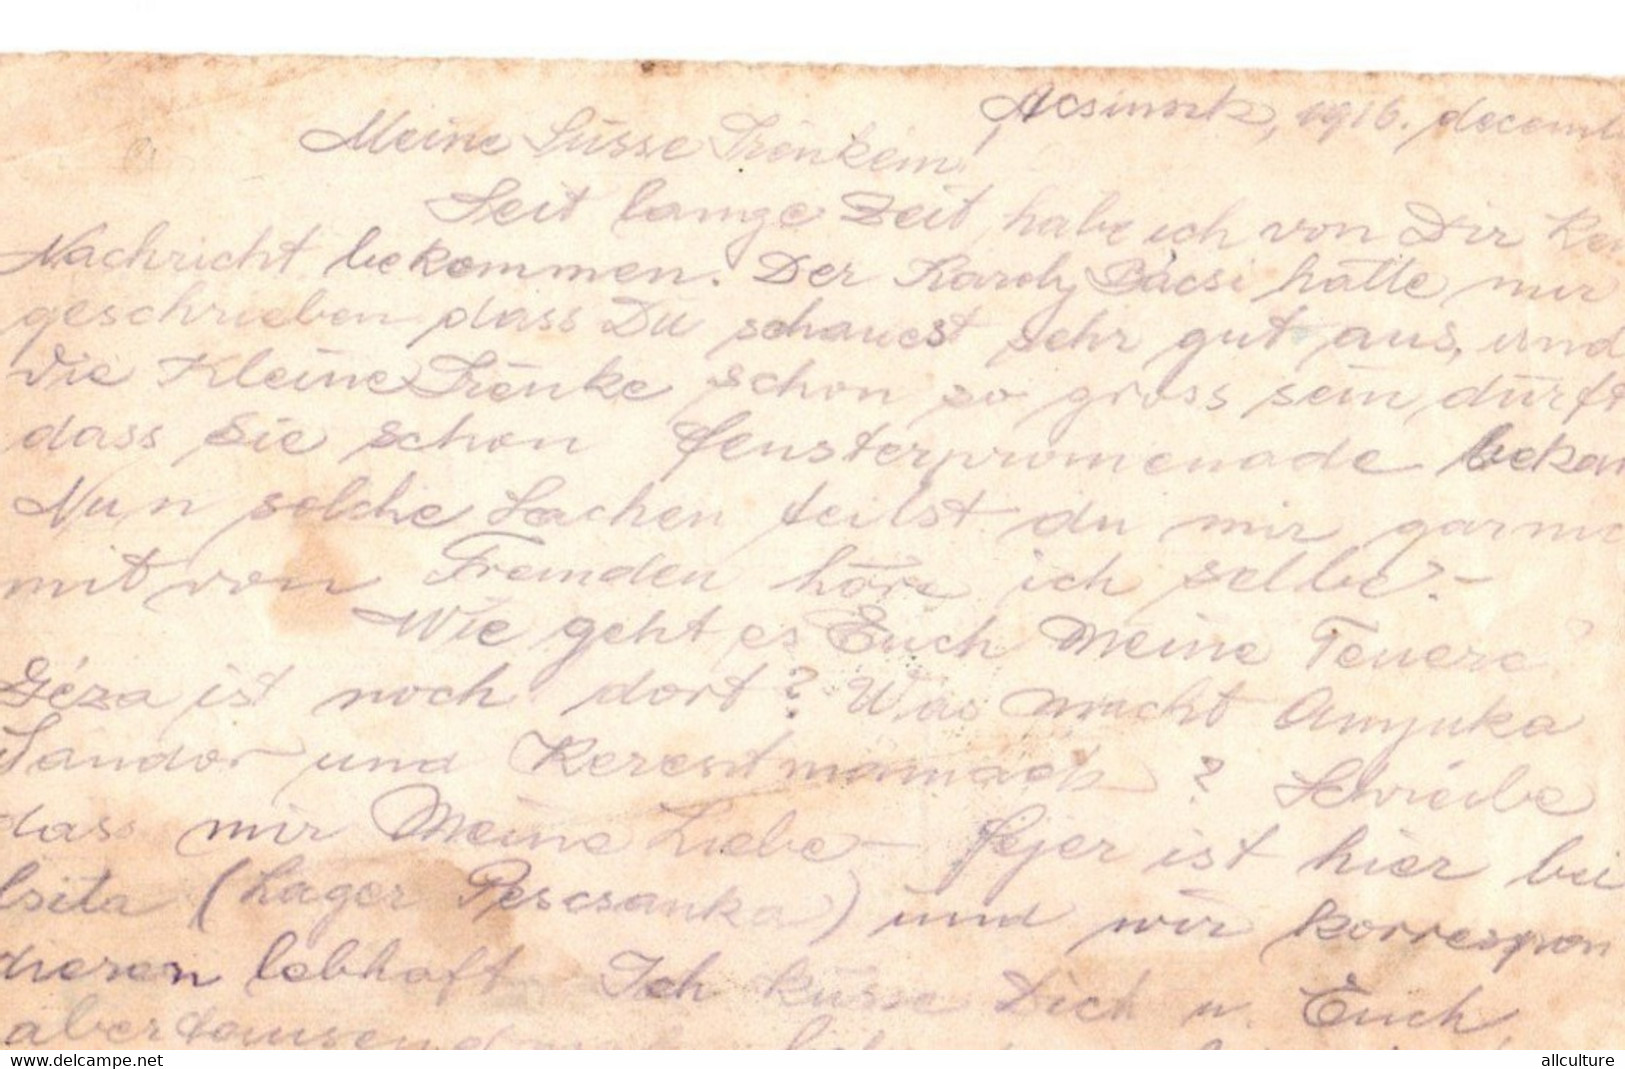 Acsinsk, 1916. decemb
Meine Süsse Irénkém!
Seit lange Zeit habe ich von Dir Kei
Nachricht bekommen. Der Karoly Bácsi hatte mir
geschrieben dass Du schauest sehr gut aus, und
die Kleine Irénke schon so gross sein dürft
dass Sie schon fensterpromenade bekom
Nun solche Sachen teilst du mir garnic
mit von Fremden höre ich selbe.-
Wie geht es Euch Meine Teuere?
Géza ist noch dort? Was macht Anyuka
Sándor und Keresztmamack? Schreibe
dass mir Meine Liebe - Fejer ist hier bei
Csita (Lager Pescsanka) und wir korrespon
dieren lebhaft. Ich küsse Dich u. Euch
abertausendmal
www.delcampe.net
allculture